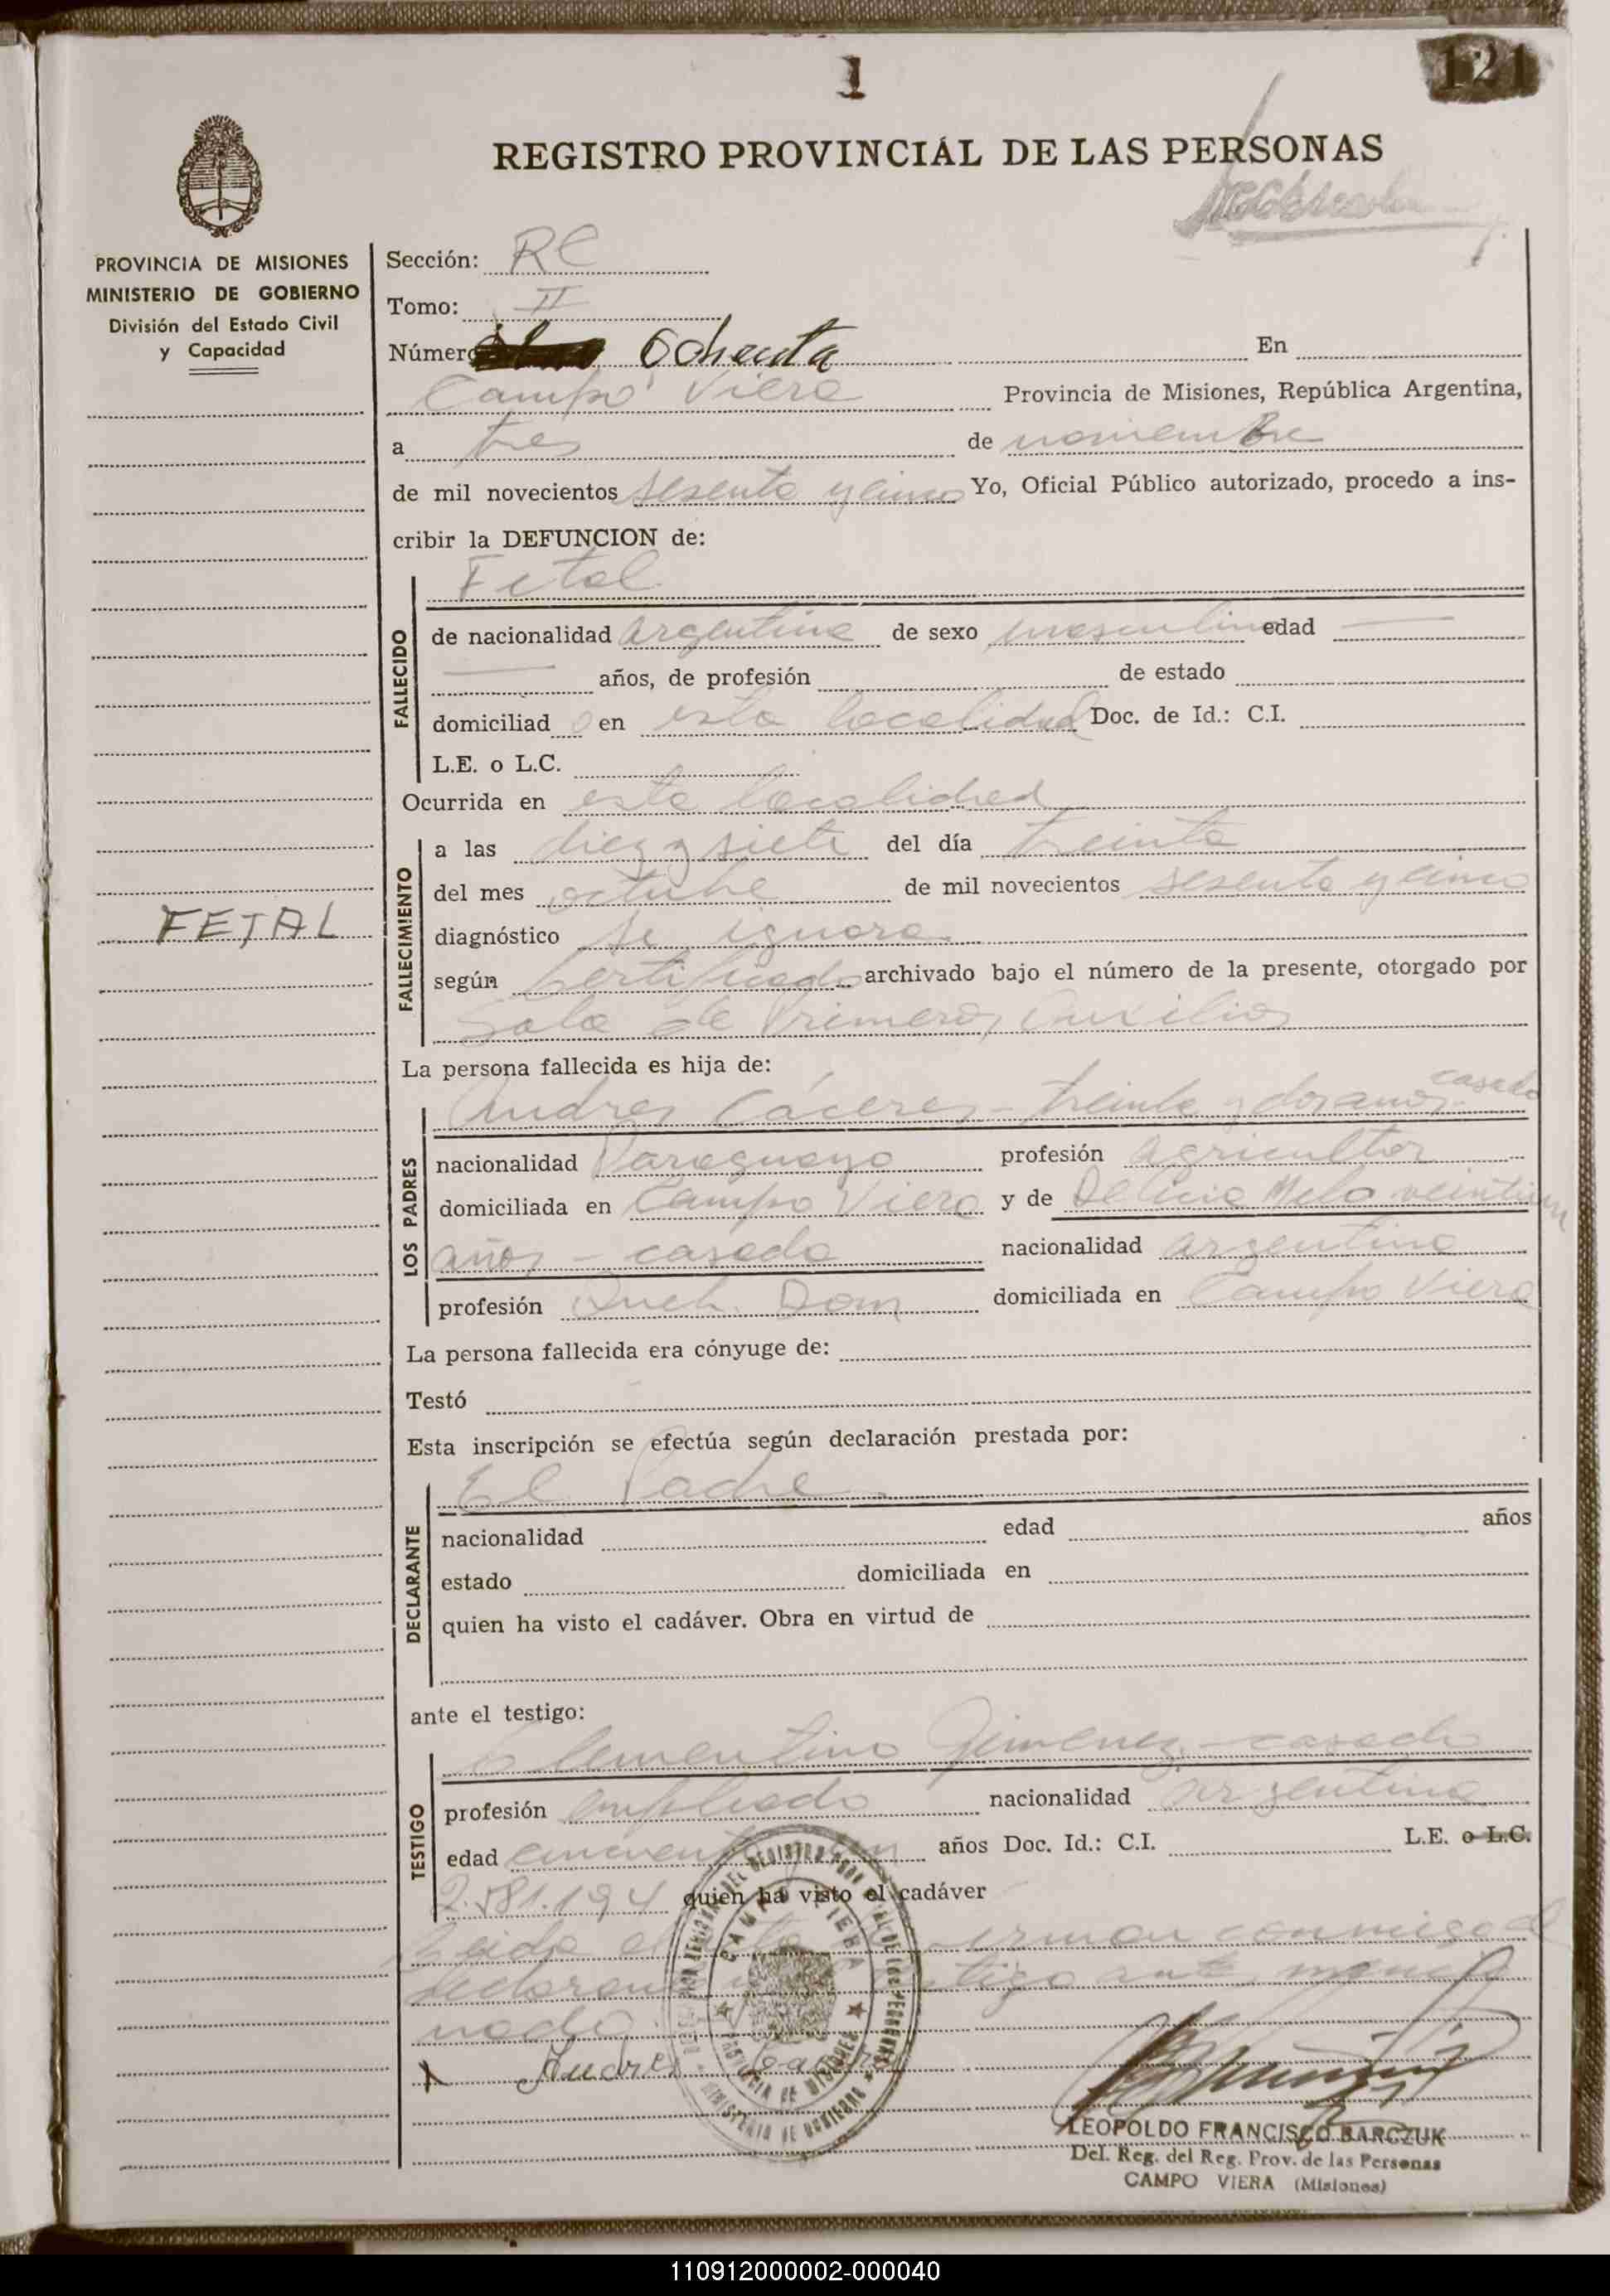 1
121
REGISTRO PROVINCIAL DE LAS PERSONAS
PROVINCIA DE MISIONES
MINISTERIO DE GOBIERNO
División del Estado Civil
y Capacidad
Sección: RC
Tomo: II
Número Ochenta En
Campo Viera Provincia de Misiones, República Argentina,
a tres de noviembre
de mil novecientos sesenta y cinco Yo, Oficial Público autorizado, procedo a ins-
cribir la DEFUNCION de:
Fetal
FALLECIDO
de nacionalidad Argentina de sexo masculino edad —
— años, de profesión de estado
domiciliad o en esta localidad Doc. de Id.: C.I.
L.E. o L.C.
Ocurrida en esta localidad
FALLECIMIENTO
a las diez y siete del día treinta
del mes octubre de mil novecientos sesenta y cinco
FETAL
diagnóstico se ignora
según certificado archivado bajo el número de la presente, otorgado por
Sala de Primeros Auxilios
La persona fallecida es hija de:
LOS PADRES
Andres Cáceres - treinta y dos anos - casado
nacionalidad Paraguayo profesión agricultor
domiciliada en Campo Viera y de Delicia Melo veintiun
años - casada nacionalidad argentina
profesión Queh. Dom domiciliada en Campo Viera
La persona fallecida era cónyuge de:
Testó
Esta inscripción se efectúa según declaración prestada por:
DECLARANTE
El Padre
nacionalidad edad años
estado domiciliada en
quien ha visto el cadáver. Obra en virtud de
ante el testigo:
TESTIGO
Clementino Gimenez - casado
profesión empleado nacionalidad argentina
edad años Doc. Id.: C.I. L.E. o L.C.
2.581.194 quien ha visto el cadáver
Leida el acta firman conmigo el
declarante testigo ante mencio
nado
CAMPO VIERA
PROVINCIA DE MISIONES
MINISTERIO DE GOBIERNO
Andres
LEOPOLDO FRANCISCO BARCZUK
Del. Reg. del Reg. Prov. de las Personas
CAMPO VIERA (Misiones)
110912000002-000040